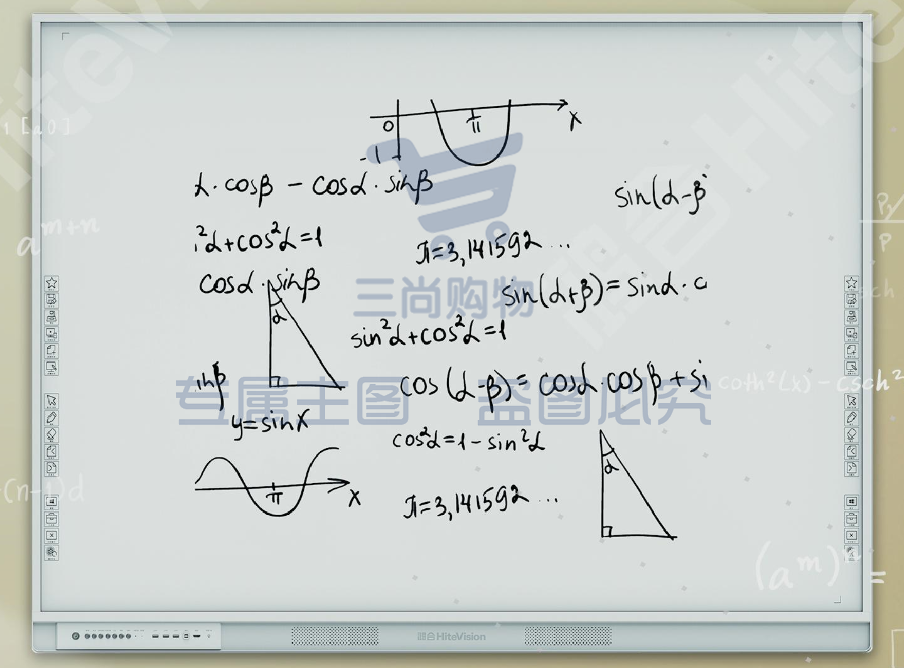 0
π
x
-1
α·cosβ – cosα·sinβ
sin(α-β
²α+cos²α=1
π=3,141592...
cosα·sinβ
α
sin(α+β)=sinα·c
三尚购物
sin²α+cos²α=1
inβ
cos(α-β)=cosα·cosβ+si
专属主图 盗图必究
y=sinx
cos²α=1-sin²α
π
x
π=3,141592...
α
a^(m+n)
P
coth²(x)-csch²
(n-1)d
(a^m)^n =
HiteVision